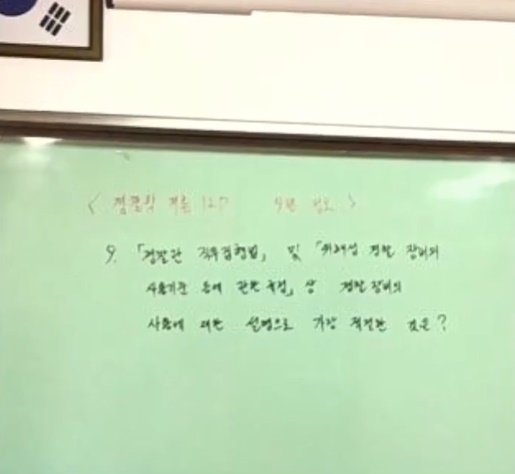 < 경찰학 기출 127 9번 >
9. 「경찰관 직무집행법」 및 「위해성 경찰 장비의
사용기준 등에 관한 규정」상 경찰 장비의
사용에 대한 설명으로 가장 적절한 것은?